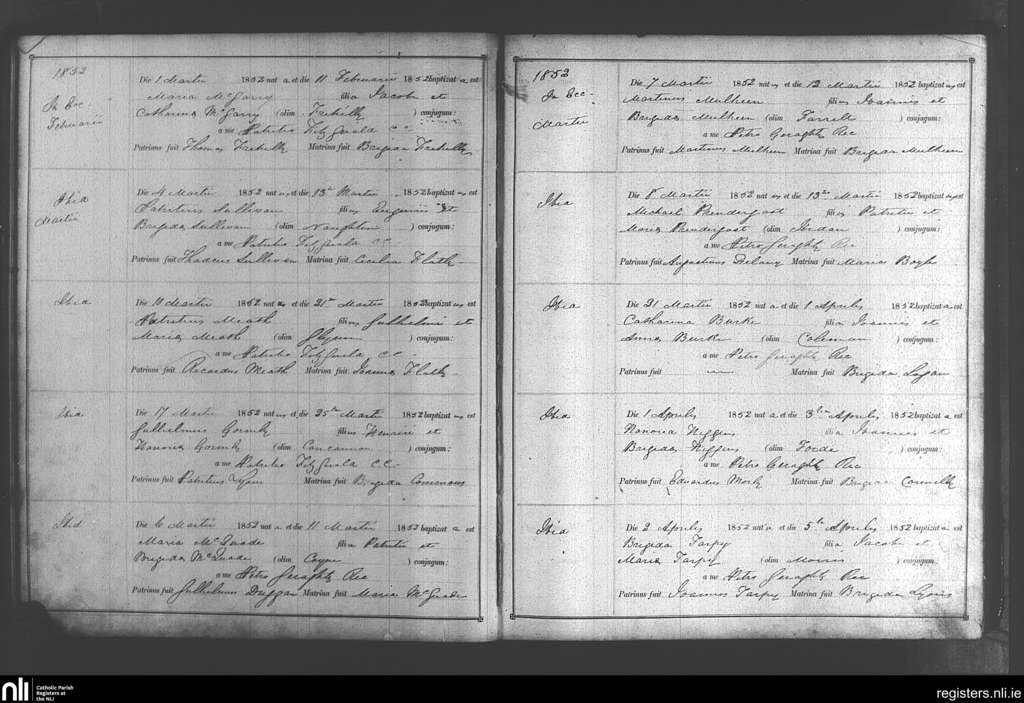 1852
In Ecc
Februarii
Die 1 Martii 1852 nat a et die 11 Februarii 1852 baptizat a est
Maria McGarry filia Jacobi et
Catharina McGarry (olim ) conjugum:
a me Patritio FitzGerald CC
Patrinus fuit Thomas Matrina fuit Brigida
Ibid
Martii
Die 4 Martii 1852 nat us et die 13a Martii 1852 baptizat us est
Patritius Sullivan filius Eugenii et
Brigida Sullivan (olim Naughton ) conjugum:
a me Patritio FitzGerald CC
Patrinus fuit Thadeus Sullivan Matrina fuit Cecilia Flatly
Ibid
Die 10 Martii 1852 nat us et die 21a Martii 1852 baptizat us est
Patritius Meath filius Gulhelmi et
Maria Meath (olim Glynn ) conjugum:
a me Patritio FitzGerald CC
Patrinus fuit Ricardus Meath Matrina fuit Joanna Flatly
Ibid
Die 17 Martii 1852 nat us et die 25ta Martii 1852 baptizat us est
Gulhelmus filius Henrici et
Honoria (olim Concannon ) conjugum:
a me Patritio FitzGerald CC
Patrinus fuit Patritius Lyons Matrina fuit Brigida Commons
Ibid
Die 6 Martii 1852 nat a et die 11 Martii 1852 baptizat a est
Maria McQuade filia Patritii et
Brigida McQuade (olim Coyne ) conjugum:
a me Petro Geraghty Rec
Patrinus fuit Gulhelmus Duggan Matrina fuit Maria McQuade
1852
In Ecc-
Martii
Die 7 Martii 1852 nat us et die 12 Martii 1852 baptizat us est
Martinus Mulheen filius Joannis et
Brigida Mulheen (olim Farrell ) conjugum:
a me Petro Geraghty Rec
Patrinus fuit Martinus Mulheen Matrina fuit Brigida Mulheen
Ibid
Die 8 Martii 1852 nat us et die 13a Martii 1852 baptizat us est
Michael Prendergast filius Patritii et
Maria Prendergast (olim Jordan ) conjugum:
a me Petro Geraghty Rec
Patrinus fuit Augustinus Delany Matrina fuit Maria Boyle
Ibid
Die 21 Martii 1852 nat a et die 1 Aprilis 1852 baptizat a est
Catharina Burke filia Joannis et
Anna Burke (olim Coleman ) conjugum:
a me Petro Geraghty Rec
Patrinus fuit — Matrina fuit Brigida Logan
Ibid
Die 1 Aprilis 1852 nat a et die 3tia Aprilis 1852 baptizat a est
Honoria Higgins filia Joannis et
Brigida Higgins (olim Forde ) conjugum:
a me Petro Geraghty Rec
Patrinus fuit Eduardus Matrina fuit Brigida
Ibid
Die 2 Aprilis 1852 nat a et die 5ta Aprilis 1852 baptizat a est
Brigida Tarpy filia Jacobi et
Maria Tarpy (olim Morris ) conjugum:
a me Petro Geraghty Rec
Patrinus fuit Joannes Tarpy Matrina fuit Brigida Lyons
nli Catholic Parish
Registers at
the NLI
registers.nli.ie